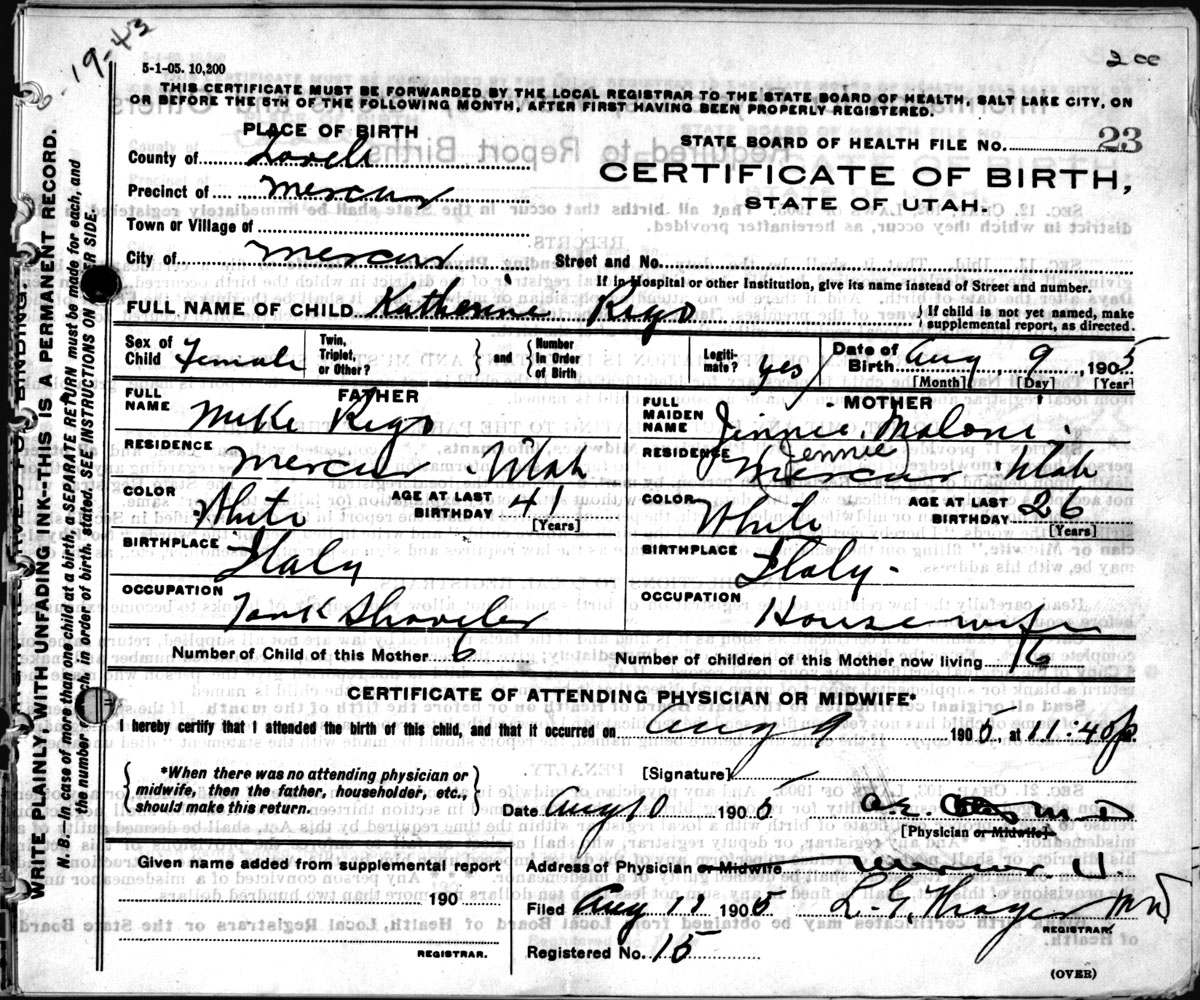 19-43
2 cc
5-1-05. 10,200
THIS CERTIFICATE MUST BE FORWARDED BY THE LOCAL REGISTRAR TO THE STATE BOARD OF HEALTH, SALT LAKE CITY, ON
OR BEFORE THE 5TH OF THE FOLLOWING MONTH, AFTER FIRST HAVING BEEN PROPERLY REGISTERED.
PLACE OF BIRTH
STATE BOARD OF HEALTH FILE No. 23
County of
CERTIFICATE OF BIRTH,
STATE OF UTAH.
Precinct of Mercur
Town or Village of
City of Mercur Street and No.
If in Hospital or other Institution, give its name instead of Street and number.
FULL NAME OF CHILD Katherine Rigo { If child is not yet named, make
supplemental report, as directed.
Sex of Child Female Twin, Triplet, or Other? } and { Number in Order of Birth Legitimate? yes Date of Birth Aug 9, 1905
[Month] [Day] [Year]
FATHER
FULL NAME Mike Rigo
RESIDENCE Mercur Utah
COLOR White AGE AT LAST BIRTHDAY 41
[Years]
BIRTHPLACE Italy
OCCUPATION Tank Shoveler
MOTHER
FULL MAIDEN NAME Jennie Maloni
Jennie
RESIDENCE Mercur Utah
COLOR White AGE AT LAST BIRTHDAY 26
[Years]
BIRTHPLACE Italy
OCCUPATION Housewife
Number of Child of this Mother 6 Number of children of this Mother now living 6
CERTIFICATE OF ATTENDING PHYSICIAN OR MIDWIFE*
I hereby certify that I attended the birth of this child, and that it occurred on Aug 9 1905 at 11:40 p.
{ *When there was no attending physician or
midwife, then the father, householder, etc.,
should make this return. }
[Signature]
Date Aug 10 1905
[Physician or Midwife]
Given name added from supplemental report
190
REGISTRAR.
Address of Physician or Midwife Mercur U.
Filed Aug 11 1905 L. G. Thayer MD
REGISTRAR.
Registered No. 15
(OVER)
WRITE PLAINLY, WITH UNFADING INK—THIS IS A PERMANENT RECORD.
N. B.—In case of more than one child at a birth, a SEPARATE RETURN must be made for each, and
the number of each, in order of birth, stated. SEE INSTRUCTIONS ON OTHER SIDE.